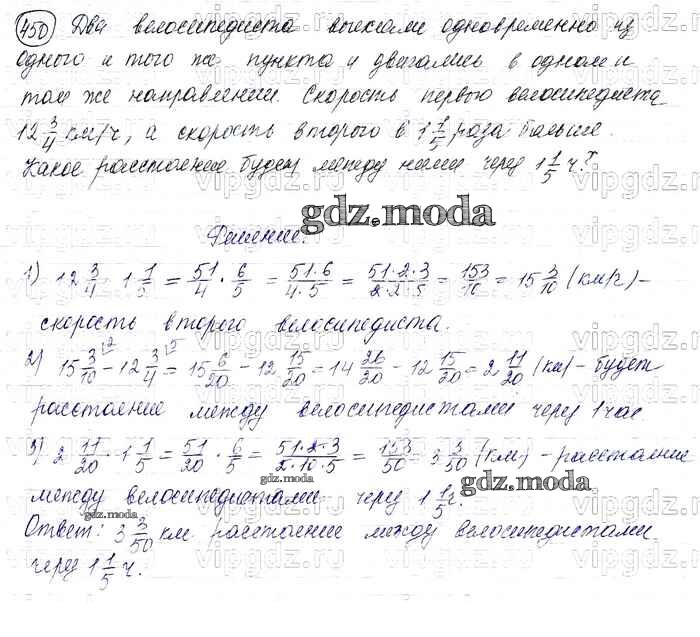 450 Два велосипедиста выехали одновременно из
одного и того же пункта и двигались в одном и
том же направлении. Скорость первого велосипедиста
12 3/4 км/ч, а скорость второго в 1 1/5 раза больше.
Какое расстояние будет между ними через 1 1/5 ч?
gdz.moda
Решение.
1) 12 3/4 · 1 1/5 = 51/4 · 6/5 = 51·6/4·5 = 51·2·3/2·2·5 = 153/10 = 15 3/10 (км/ч) –
скорость второго велосипедиста.
2) 15 3/10 – 12 3/4 = 15 6/20 – 12 15/20 = 14 26/20 – 12 15/20 = 2 11/20 (км) – будет
расстояние между велосипедистами через 1 час
3) 2 11/20 · 1 1/5 = 51/20 · 6/5 = 51·2·3/2·10·5 = 153/50 = 3 3/50 (км) – расстояние
gdz.moda
между велосипедистами через 1 1/5 ч.
gdz.moda
gdz.moda
Ответ: 3 3/50 км расстояние между велосипедистами
через 1 1/5 ч.